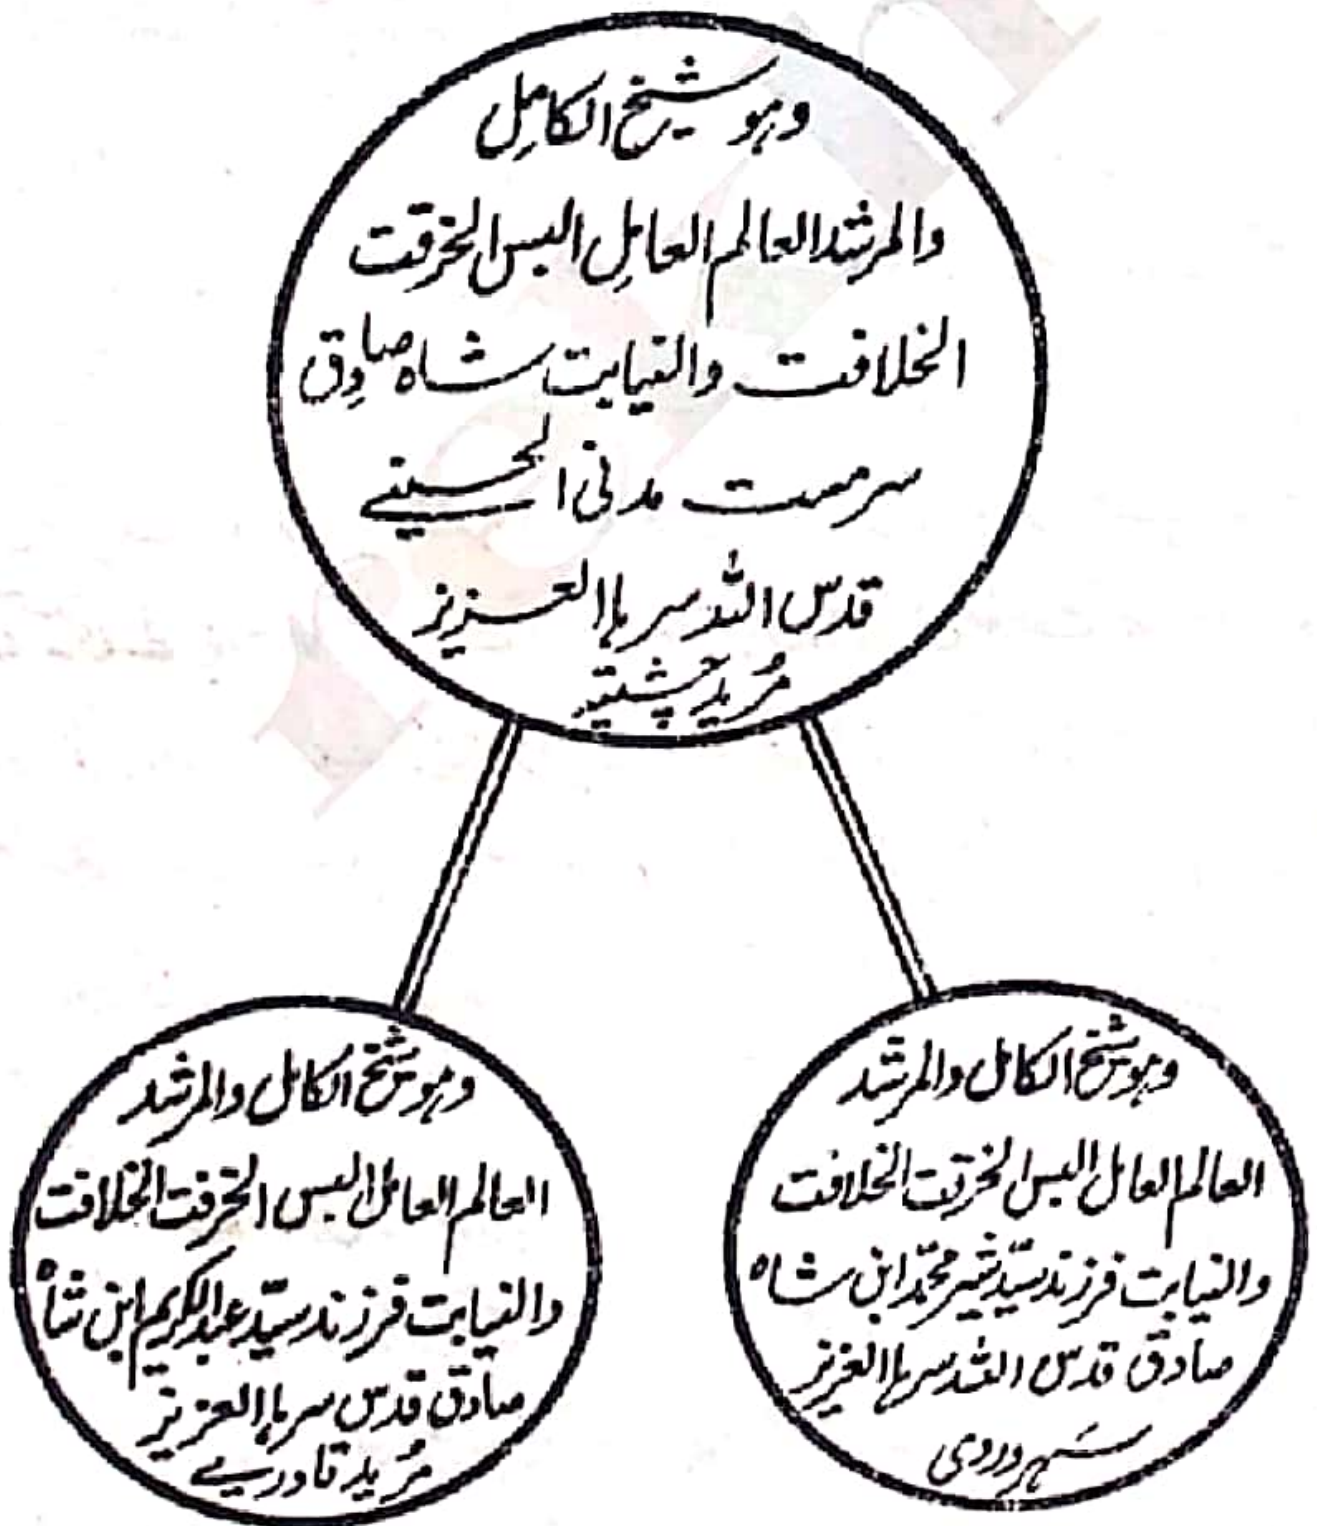 وہو شیخ الکامِل
والمرشد العالم العامِل البس الخرقت
الخلافت والنیابت شاہ صادِق
سرمست مدنی الحسینے
قدسّ اللہ سرہاالعزیز
مُرید چشتیہ
وہوشیخ الکامل والمرشد
العالم العامل البس الخرقت الخلافت
والنیابت فرزند سیّد شیر محمّد ابن شاہ
صادق قدسّ اللہ سرہاالعزیز
سَہروردی
وہوشیخ الکامل والمرشد
العالم العامل البس الخرقت الخلافت
والنیابت فرزند سیّد عبدالکریم ابن شاہ
صادق قدس سرہاالعزیز
مُرید قادریے